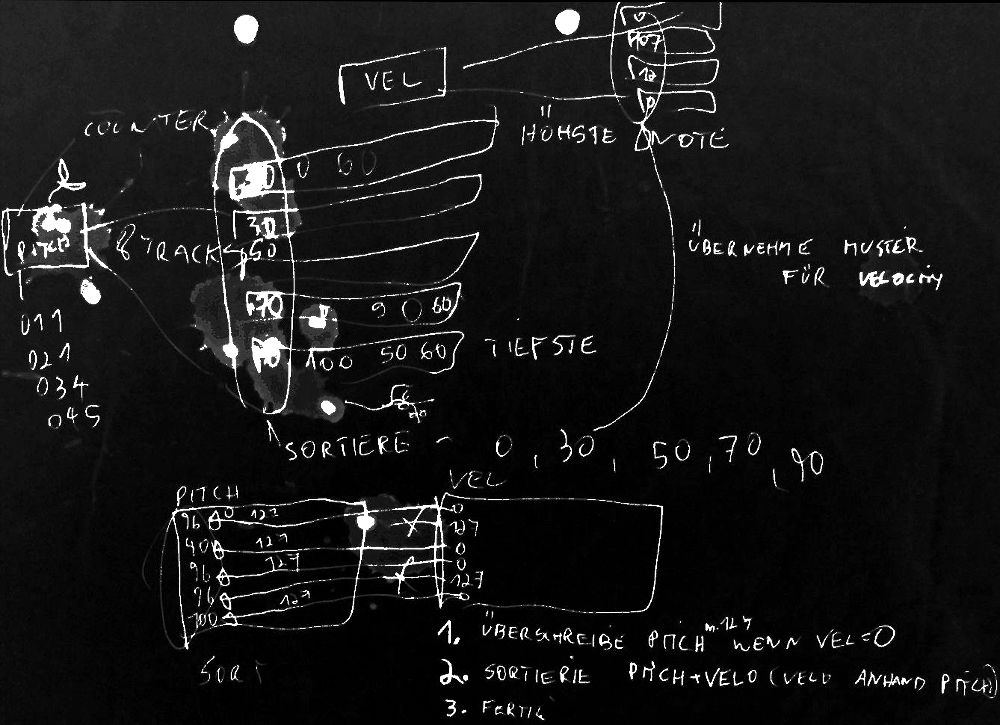 VEL
0
107
10
0
COUNTER
HÖHSTE NOTE
30 0 60
30
PITCH
8 TRACKS
50
ÜBERNEHME MUSTER
FÜR VELOCITY
70 9 0 60
100 50 60 TIEFSTE
011
021
034
045
SORTIERE 0, 30, 50, 70, 90
PITCH VEL
96 0 127 0
127
40 127 0
96 127 0
96 127
100 127 0
SORT
1. ÜBERSCHREIBE PITCH m. 127 WENN VEL=0
2. SORTIERE PITCH+VELO (VELO ANHAND PITCH)
3. FERTIG